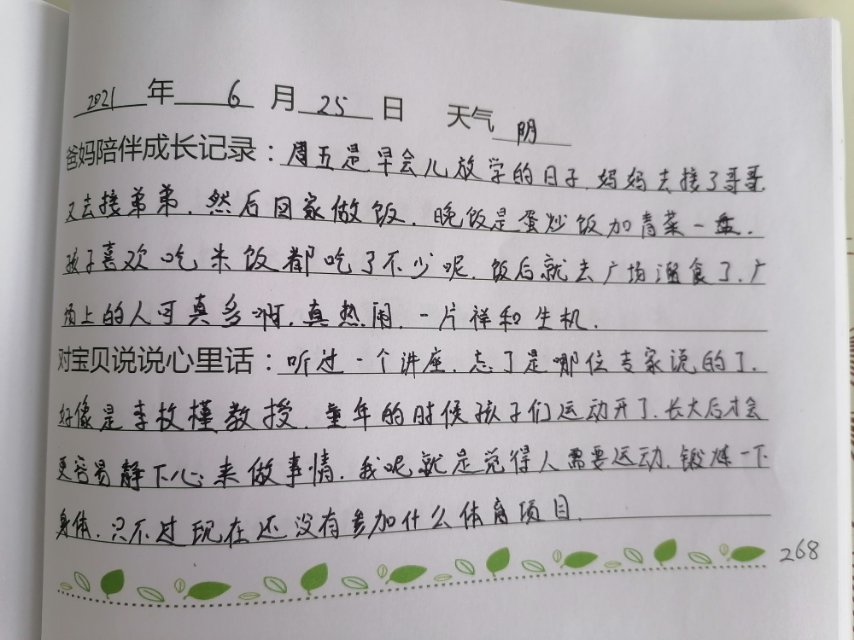 2021年6月25日 天气 阴
爸妈陪伴成长记录：周五是早会儿放学的日子.妈妈去接了哥哥
又去接弟弟.然后回家做饭.晚饭是蛋炒饭加青菜一盘.
孩子喜欢吃米饭都吃了不少呢.饭后就去广场溜食了.广
场上的人可真多啊.真热闹.一片祥和生机.
对宝贝说说心里话：听过一个讲座.忘了是哪位专家说的了.
好像是李枚槿教授.童年的时候孩子们运动开了.长大后才会
更容易静下心来做事情.我呢就是觉得人需要运动.锻炼一下
身体.只不过现在还没有参加什么体育项目.
268